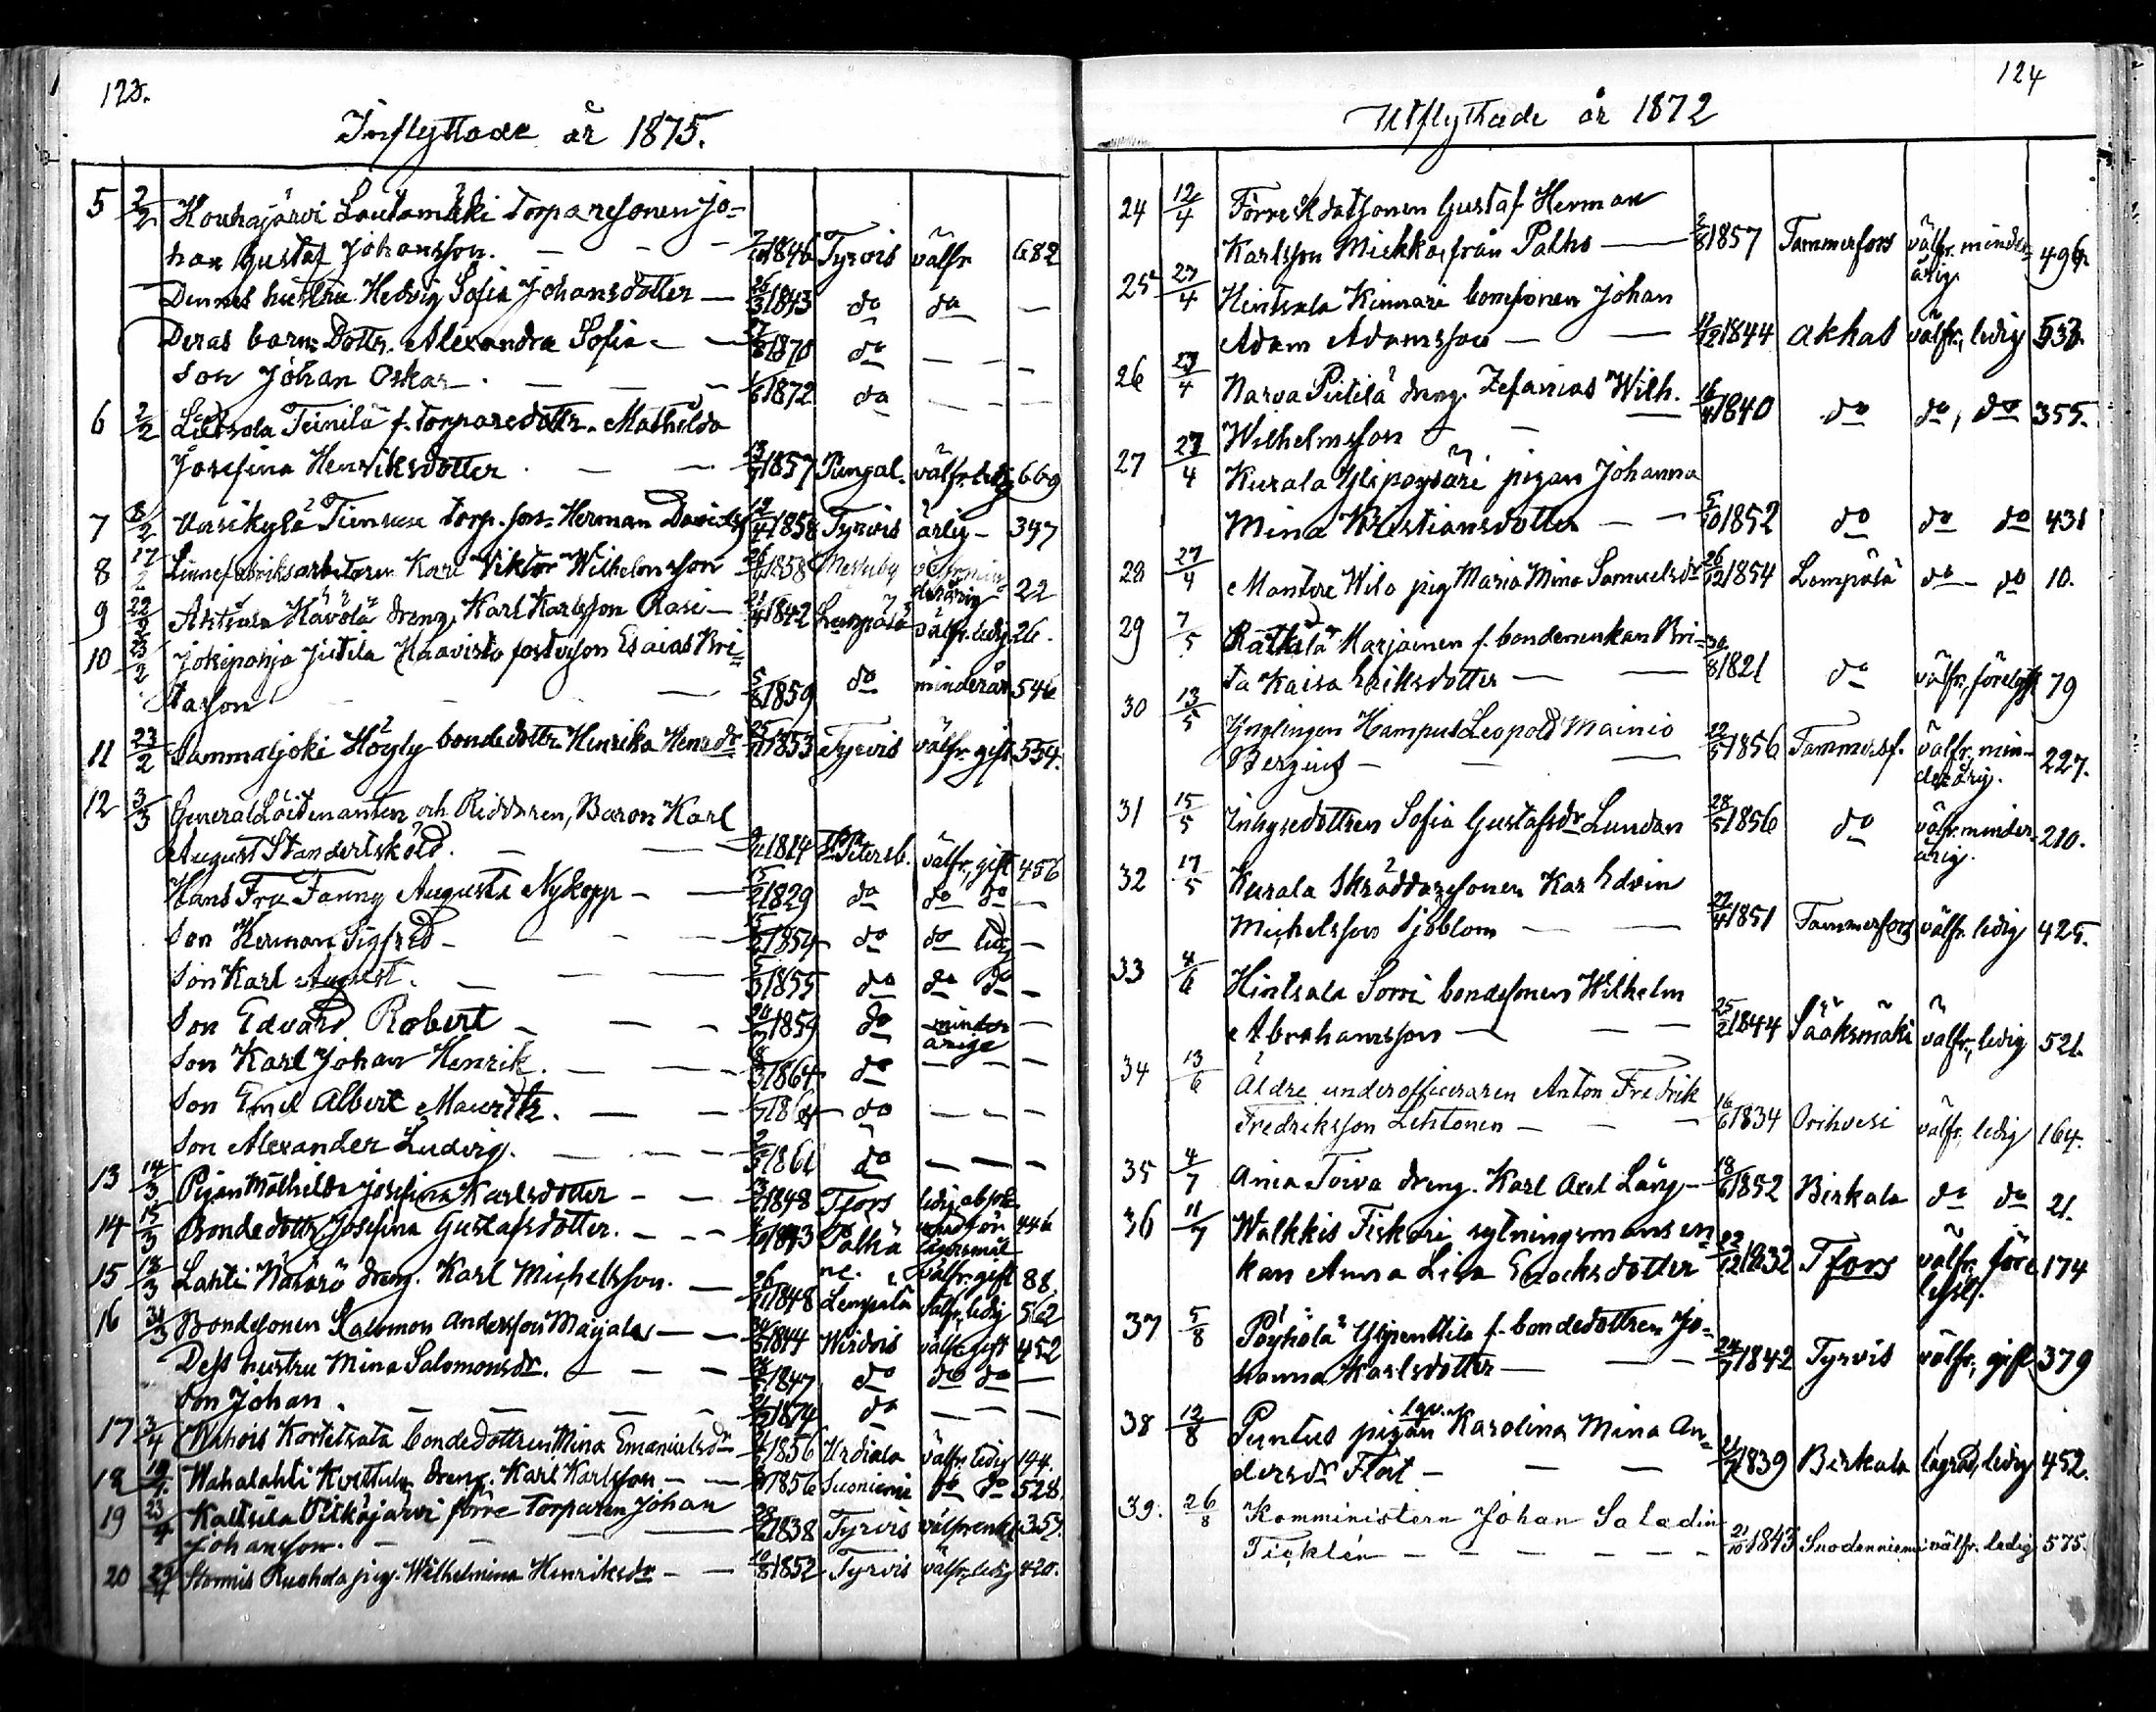 123.
Inflyttade år 1875.
5 2/2 Kouhajärvi Lautamäki Torparesonen Jo-
han Gustaf Johansson. — 1846 Tyrvis välfr 682
Dennes hustru Hedvig Sofia Johansdotter — 26/3 1843 do do —
Deras barn: Dottr. Alexandra Sofia — 1870 do — —
Son Johan Oskar — 1872 do — —
6 2/2 Teinilä f. torparedottr. Mathilda
Josefina Henriksdotter — 13/7 1857 Pungal. välfr. ledig 669
7 8/2 Uusikylä Torp. son Herman Davidss 1858 Tyrvis ärlig — 397
8 17/2 Linnefabriksarbetaren Karl Viktor Wilhelmsson 1858 Messuby välfr. min-
derårig 22
9 22/2 Ahtiala Hävölä dreng. Karl Karlsson Rasi — 1842 Lempälä välfr. ledig 26.
10 23/2 Jokipohja Jutila Haavisto fosterson Esaias Bri-
tasson — 5/8 1859 do minderår 546
11 23/2 Sammaljoki Höyly bondedottr Henrika Henrsdr 25/11 1853 Tyrvis välfr. gift 554.
12 3/3 General Löitenanten och Riddaren, Baron Karl
August Standertsköld. — 1814 St. Petersb. välfr., gift 456
Hans Fru Fanny Augusta Nykopp — 1829 do do do —
Son Herman Sigfred — 1854 do do ledig —
Son Karl August. — 1855 do do do —
Son Edvard Robert — 1859 do minder
årige —
Son Karl Johan Henrik. — 1864 do — —
Son Emil Albert Mauritz. — do — —
Son Alexander Ludvig. — 1861 do — —
13 14/3 Pigan Mathilda Josefina Karlsdotter — 1848 Tfors ledig, absol-
14 15/3 Bondedottr. Josefina Gustafsdotter. — 1843 Pälkä- verad för 446
lägersmål
ne. välfr. gift 88.
15 18/3 Lahti dreng. Karl Michelsson. — 26/11 1848 Lempälä välfr., ledig 562
16 31/3 Bondesonen Salomon Andersson Maijala — 1844 Wirdois välfr. gift 452
Dess hustru Mina Salomonsdr. — 1847 do do do —
Son Johan. — 1874 do — —
17 3/4 Wihois Kortetsata bondedottren Mina Emanuelsdr 1856 Urdiala välfr. ledig 194.
18 19/4 Wahalahti Kutttula dreng. Karl Karlsson — 1856 Suoniemi do do 528
19 23/4 Kaltsila Pitkäjärvi förre Torparen Johan
Johansson. — 28/ 1838 Tyrvis välfr. enkl. 357.
20 29/4 Stormis Ruohola pig. Wilhelmina Henriksdr — 10/8 1852 Tyrvis välfr., ledig 420.
124
Utflyttade år 1872
24 12/4 Förre Gustaf Herman
Karlsson Miekka, från Palho — 2/8 1857 Tammerfors välfr. minder-
årig. 496.
25 27/4 Hintsala Kinnari bondsonen Johan
Adam Adamsson — 1844 Akkas välfr., ledig 533.
26 27/4 Narva Pietilä dreng. Zefanias Wilh.
Wilhelmsson — 16/4 1840 do do, do 355.
27 27/4 Kurala Ylipaysäri pigan Johanna
Mina Kristiansdotter — 5/10 1852 do do do 431
28 27/4 Mantere Wilo pig Maria Mina Samuelsdr 26/12 1854 Lempälä do — do 10.
29 7/5 Räikälä Marjainen f. bondeenkan Bri-
ta Kaisa Eriksdotter — 30/8 1821 do välfr., förelgst 79
30 13/5 Ynglingen Hampus Leopold Mainio
Bergius — 22/5 1856 Tammerf. välfr. min-
derårig. 227.
31 15/5 Inhysedottren Sofia Gustafsdr Lundan 28/5 1856 do välfr. minder-
årig. 210.
32 17/5 Kurala Skräddaresonen Karl Edvin
Michelsson Sjöblom — 27/4 1851 Tammerfors välfr. ledig 425.
33 4/6 Hintsala Sorri bondesonen Wilhelm
Abrahamsson — 25/2 1844 Sääksmäki välfr., ledig 521.
34 13/6 Äldre underofficeraren Anton Fredrik
Fredriksson Lehtonen — 16/6 1834 Orihvesi välfr. ledig 164.
35 4/7 Ania Toiva dreng. Karl Axel Lång — 18/6 1852 Birkala do do 21.
36 11/7 Walkkis Fiskari sytningsmansen-
kan Anna Lisa Enochsdotter 22/12 1832 Tfors välfr. före
174
37 5/8 Pöyhölä Ylipenttila f. bondedottren Jo-
hanna Karlsdotter — 24/7 1842 Tyrvis välfr., gift 379
38 12/8 Puntus pigan Karolina Mina An-
dersdr Flort — 1839 Birkala ledig 452.
39. 26/8 Komministern Johan Saladin
Ticklén — 21/10 1843 Suodenniemi välfr. ledig 575.